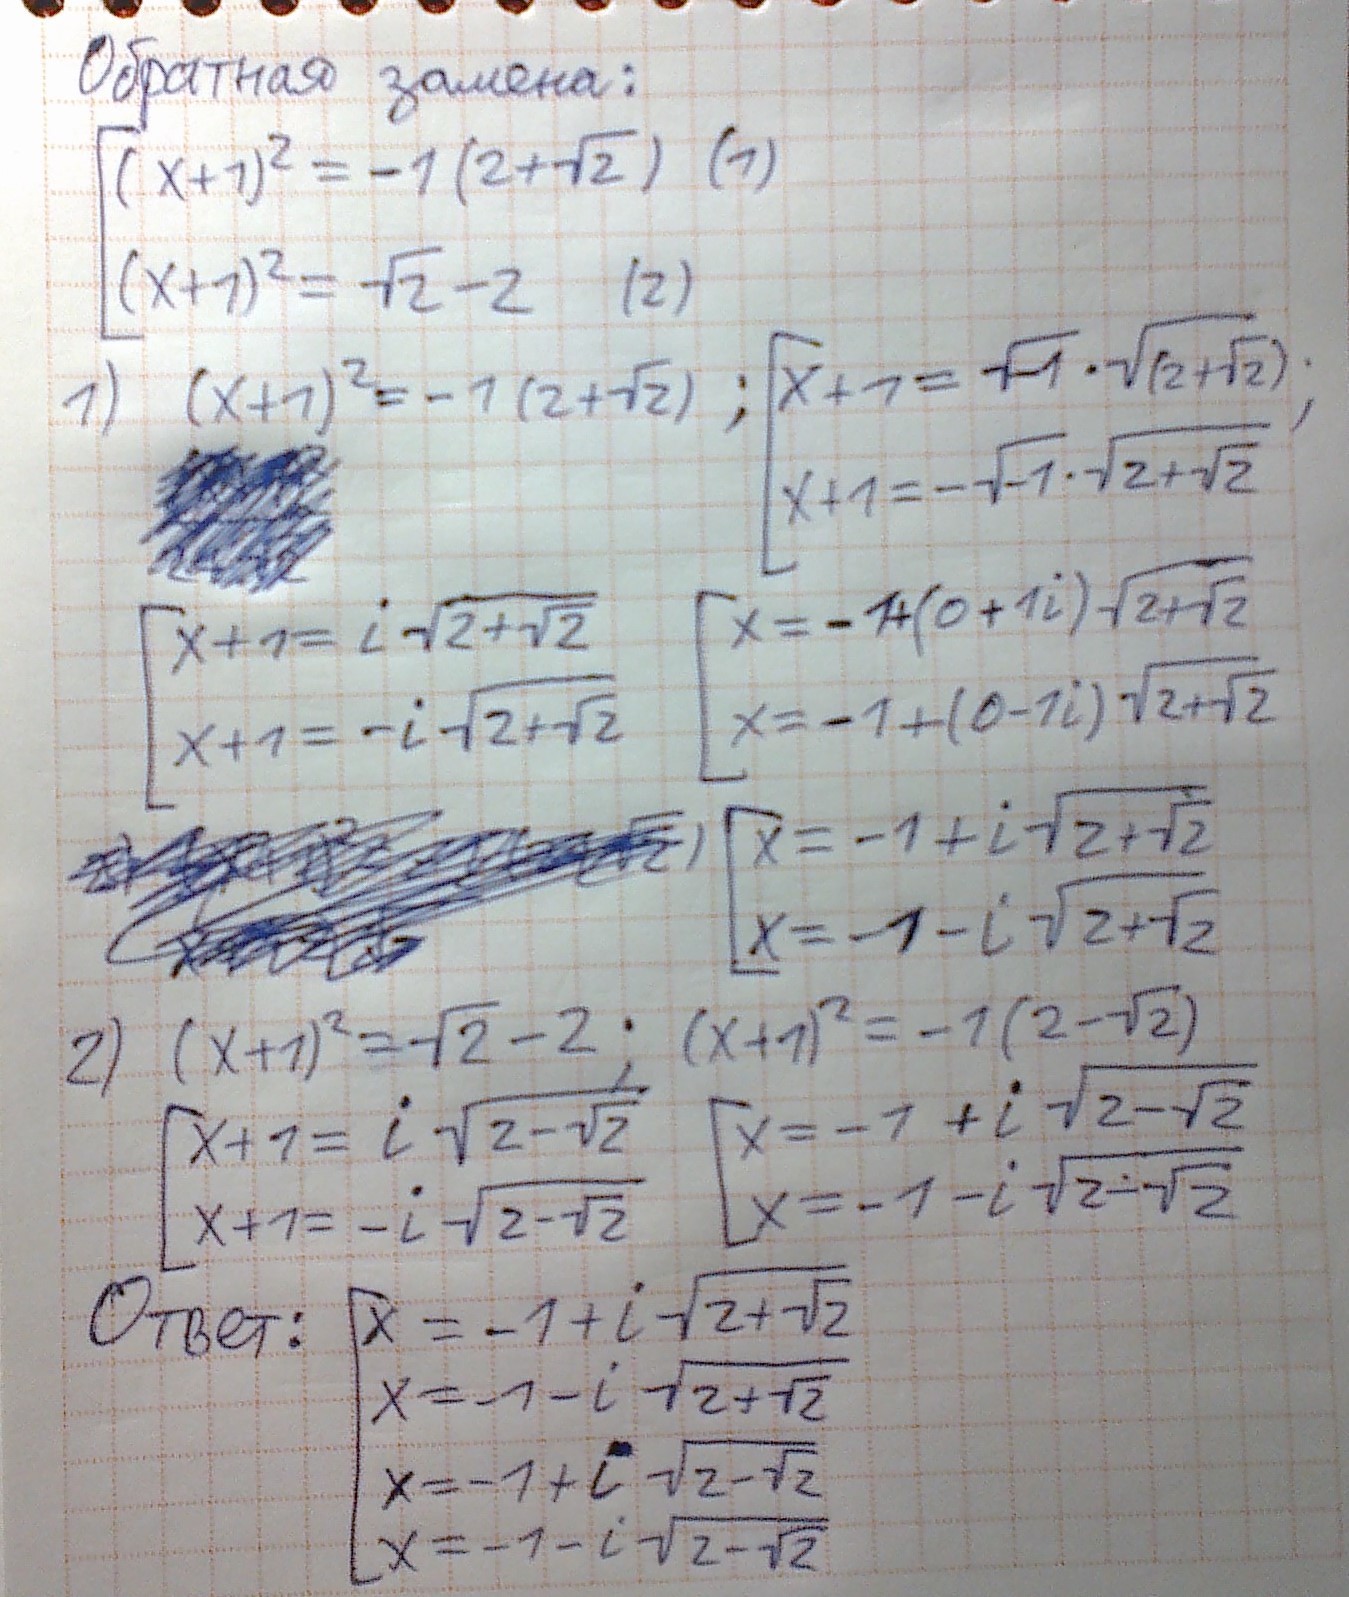 Обратная замена:
(x+1)² = -1(2+√2) (1)
(x+1)² = √2 - 2 (2)
1) (x+1)² = -1(2+√2) ; x+1 = √-1 · √(2+√2) ;
x+1 = -√-1 · √2+√2
x+1 = i √2+√2 x = -1+(0+1i) √2+√2
x+1 = -i √2+√2 x = -1+(0-1i) √2+√2
x = -1 + i √2+√2
x = -1 - i √2+√2
2) (x+1)² = √2 - 2 ; (x+1)² = -1(2-√2)
x+1 = i √2-√2 x = -1 + i √2-√2
x+1 = -i √2-√2 x = -1 - i √2-√2
Ответ: x = -1 + i √2+√2
x = -1 - i √2+√2
x = -1 + i √2-√2
x = -1 - i √2-√2